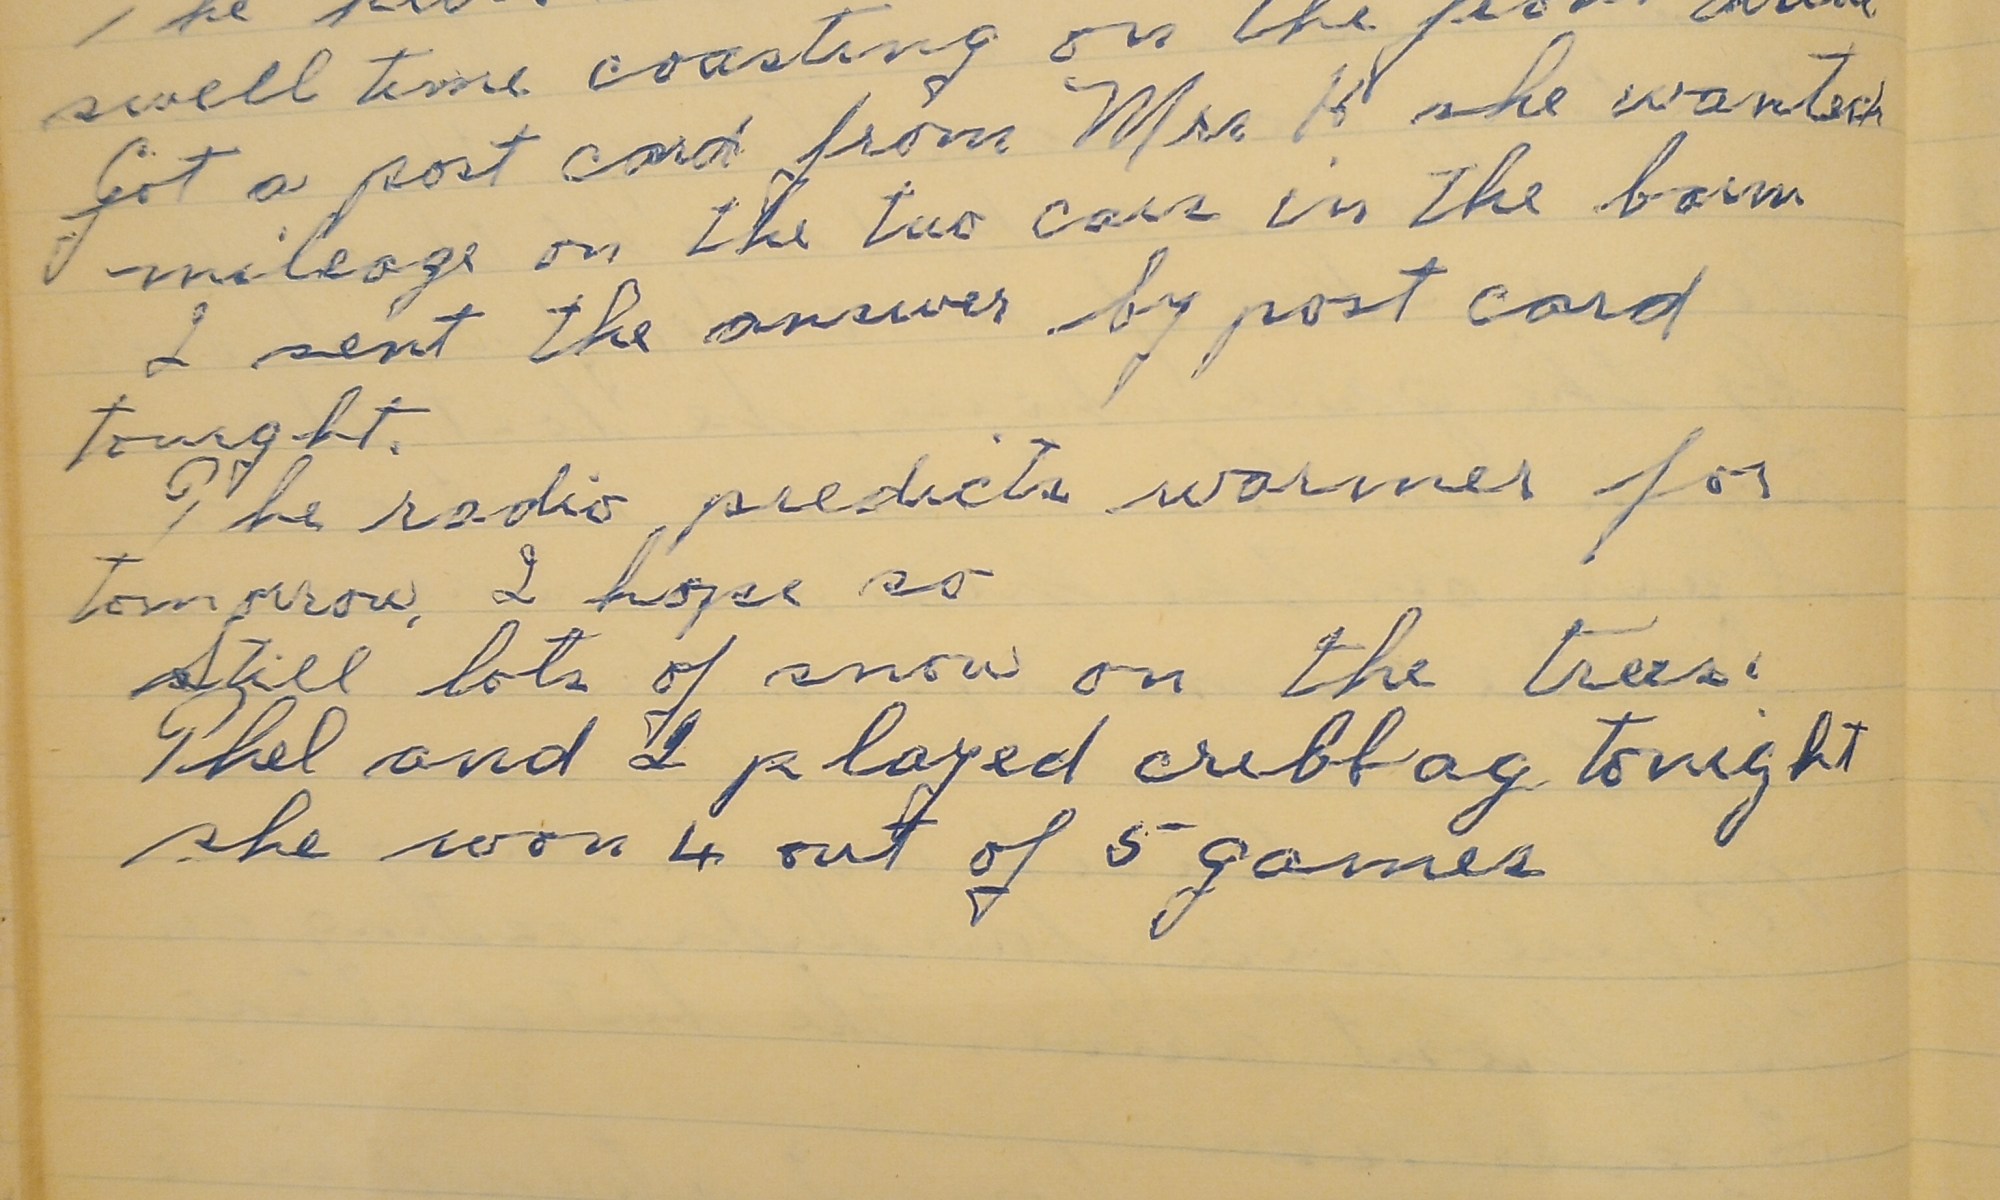 The
swell time coasting on the front
Got a post card from Mrs K she wanted
mileage on the two cars in the barn
I sent the answer by post card
tonight.
The radio predicts warmer for
tomorrow. I hope so
Still lots of snow on the trees.
Phel and I played cribbag tonight
she won 4 out of 5 games